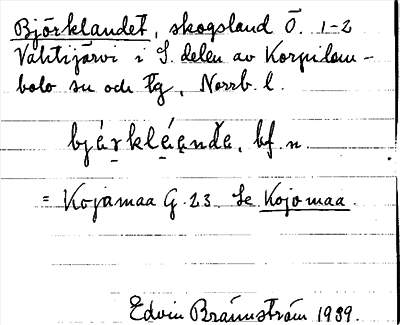 Björklandet, skogsland Ö. 1-2
Vähtijärvi i S. delen av Korpilom-
bolo sn och tg, Norrb. l.
bjærklænde, bf. n.
= Kojamaa G. 23. Se Kojomaa.
Edvin Brännström 1939.